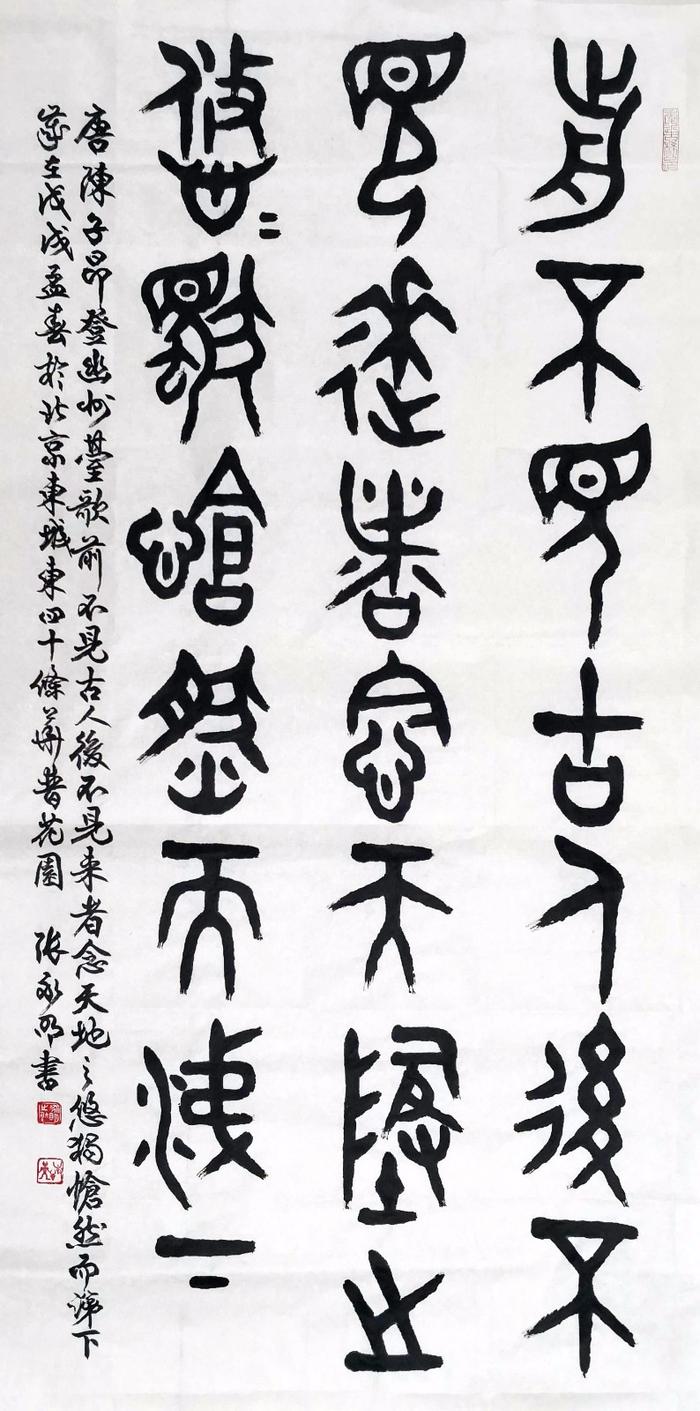 前不見古人後不
見來者念天地之
悠〻獨愴然而涕下
唐陳子昂登幽州臺歌前不見古人後不見来者念天地之悠獨愴然而涕下
歲在戊戌孟春於北京東城東四十條華普花園 張永明書